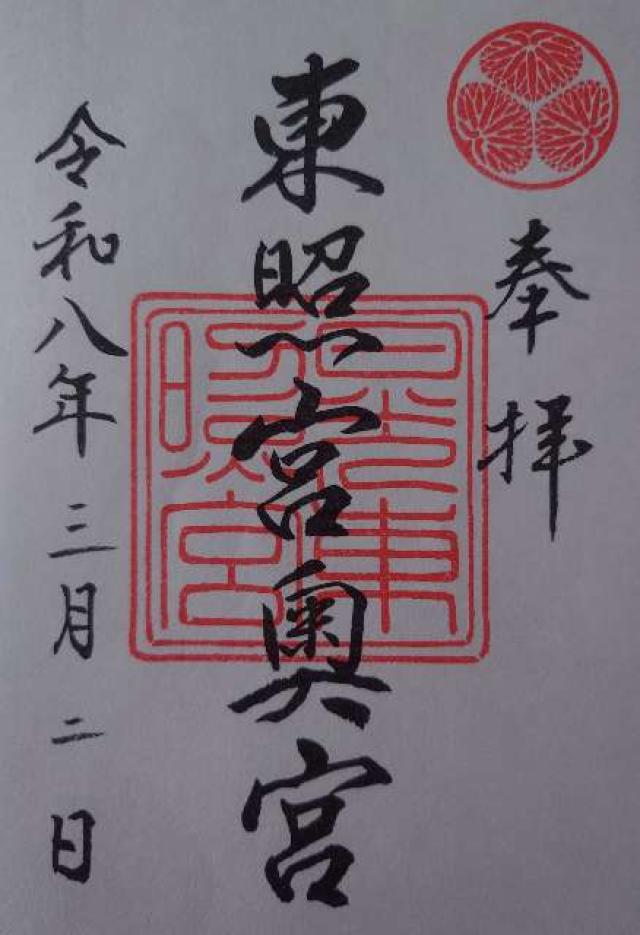 奉拝
東照宮奥宮
日光東照宮
令和八年三月二日